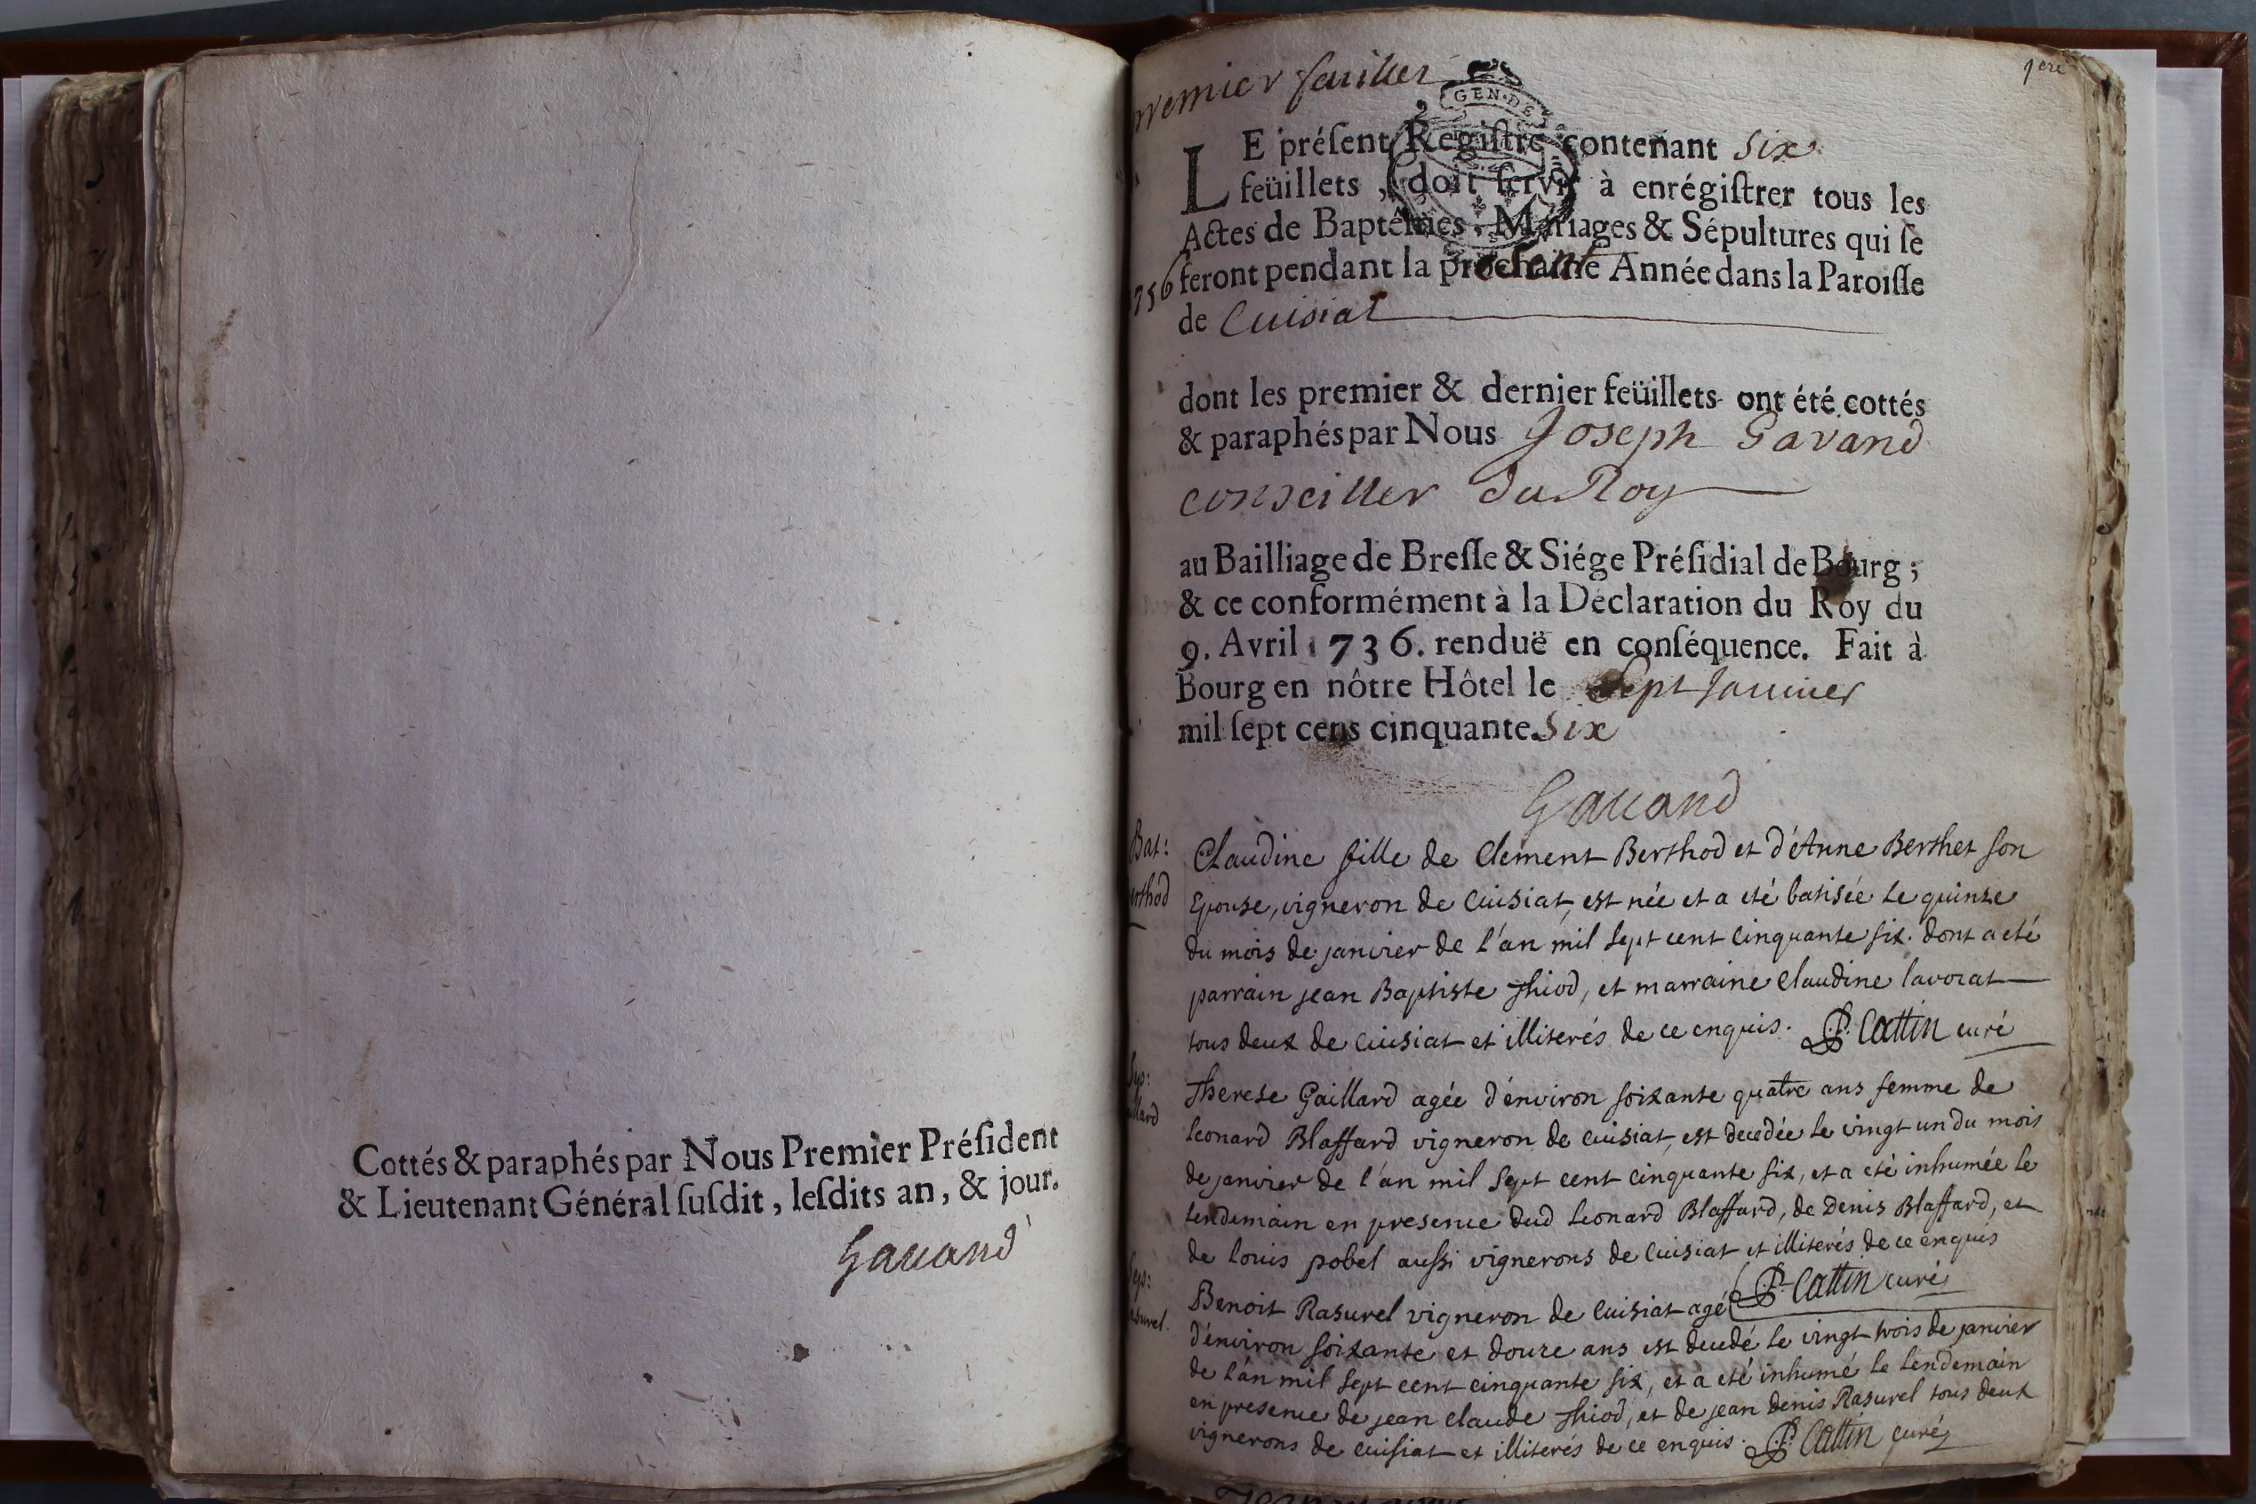 Cottés & paraphés par Nous Premier Préſident
& Lieutenant Général ſuſdit, leſdits an, & jour.
Gauand
1ere
premier feuillet
GEN·DE
LE préſent Regiſtre contenant six
feüillets, doit ſervir à enrégiſtrer tous les
Actes de Baptêmes, Mariages & Sépultures qui ſe
feront pendant la prochaine Année dans la Paroiſſe
1756
de Cuisiat
dont les premier & dernier feüillets ont été cottés
& paraphés par Nous Joseph Gavand
conseiller du Roy
au Bailliage de Breſſe & Siége Préſidial de Bourg;
& ce conformément à la Déclaration du Roy du
9. Avril 1736. renduë en conſéquence. Fait à
Bourg en nôtre Hôtel le Sept Januier
mil ſept cens cinquante Six
Gauand
Bat:
Berthod
Claudine fille de Clement Berthod et d'Anne Berthet son
Epouse, vigneron de Cuisiat, est née et a eté batisée le quinze
du mois de janvier de l'an mil sept cent cinquante six. dont a eté
parrain jean Baptiste Thiod, et marraine Claudine lavorat
tous deux de cuisiat et illiterés de ce enquis. P. Cattin curé
Sep:
Gaillard
Therese Gaillard agée d'environ soixante quatre ans femme de
Leonard Blaffard vigneron de cuisiat, est decedée le vingt un du mois
de janvier de l'an mil sept cent cinquante six, et a eté inhumée le
lendemain en presence dud Leonard Blaffard, de Denis Blaffard, et
de louis pobel aussi vignerons de Cuisiat et illiterés de ce enquis
P. Cattin curé
Sep:
Rasurel.
Benoit Rasurel vigneron de Cuisiat agé
d'environ soixante et douze ans est decedé le vingt trois de janvier
de l'an mil sept cent cinquante six, et a eté inhumé le lendemain
en presence de jean claude Thiod, et de jean denis Rasurel tous deux
vignerons de cuisiat et illiterés de ce enquis. P. Cattin curé